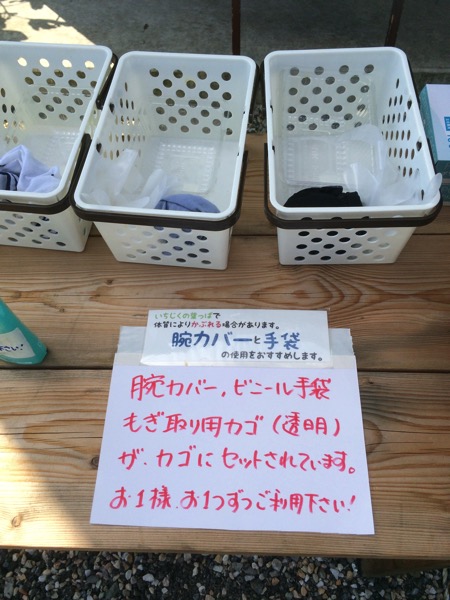 いちじくの葉っぱで
体質によりかぶれる場合があります。
腕カバーと手袋
の使用をおすすめします。
腕カバー、ビニール手袋
もぎ取り用カゴ(透明)
が、カゴにセットされています。
お1様、お1つずつご利用下さい!
ださい!